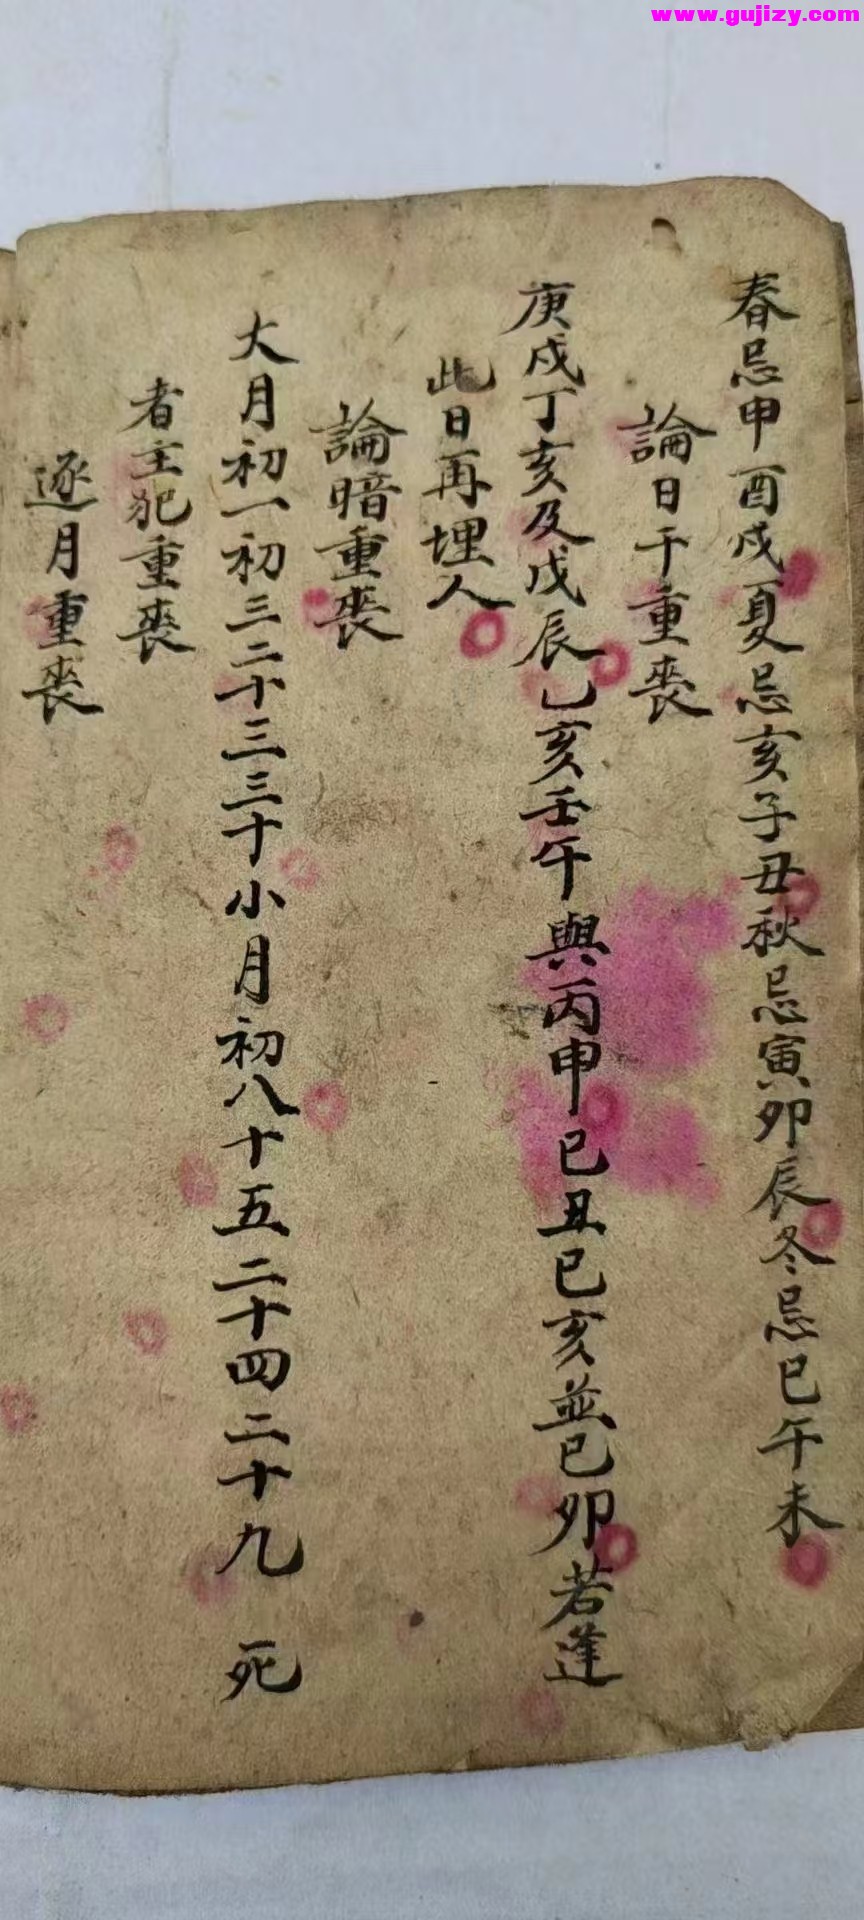 www.gujizy.com
春忌申酉戌夏忌亥子丑秋忌寅卯辰冬忌巳午未
論日干重喪
庚戌丁亥及戊辰乙亥壬午與丙申巳丑巳亥並巳卯若逢
此日再埋人
論暗重喪
大月初一初三二十三三十小月初八十五二十四二十九 死
者主犯重喪
逐月重喪